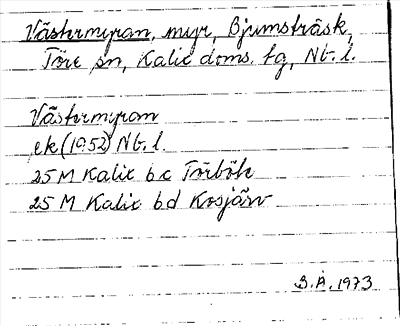 Västermyran, myr, Bjumsträsk,
Töre sn, Kalix doms. tg, Nb. l.
Västermyran
ek (1952) Nb. l.
25 M Kalix bc Törböle
25 M Kalix bd Kosjärv
B.Å. 1973